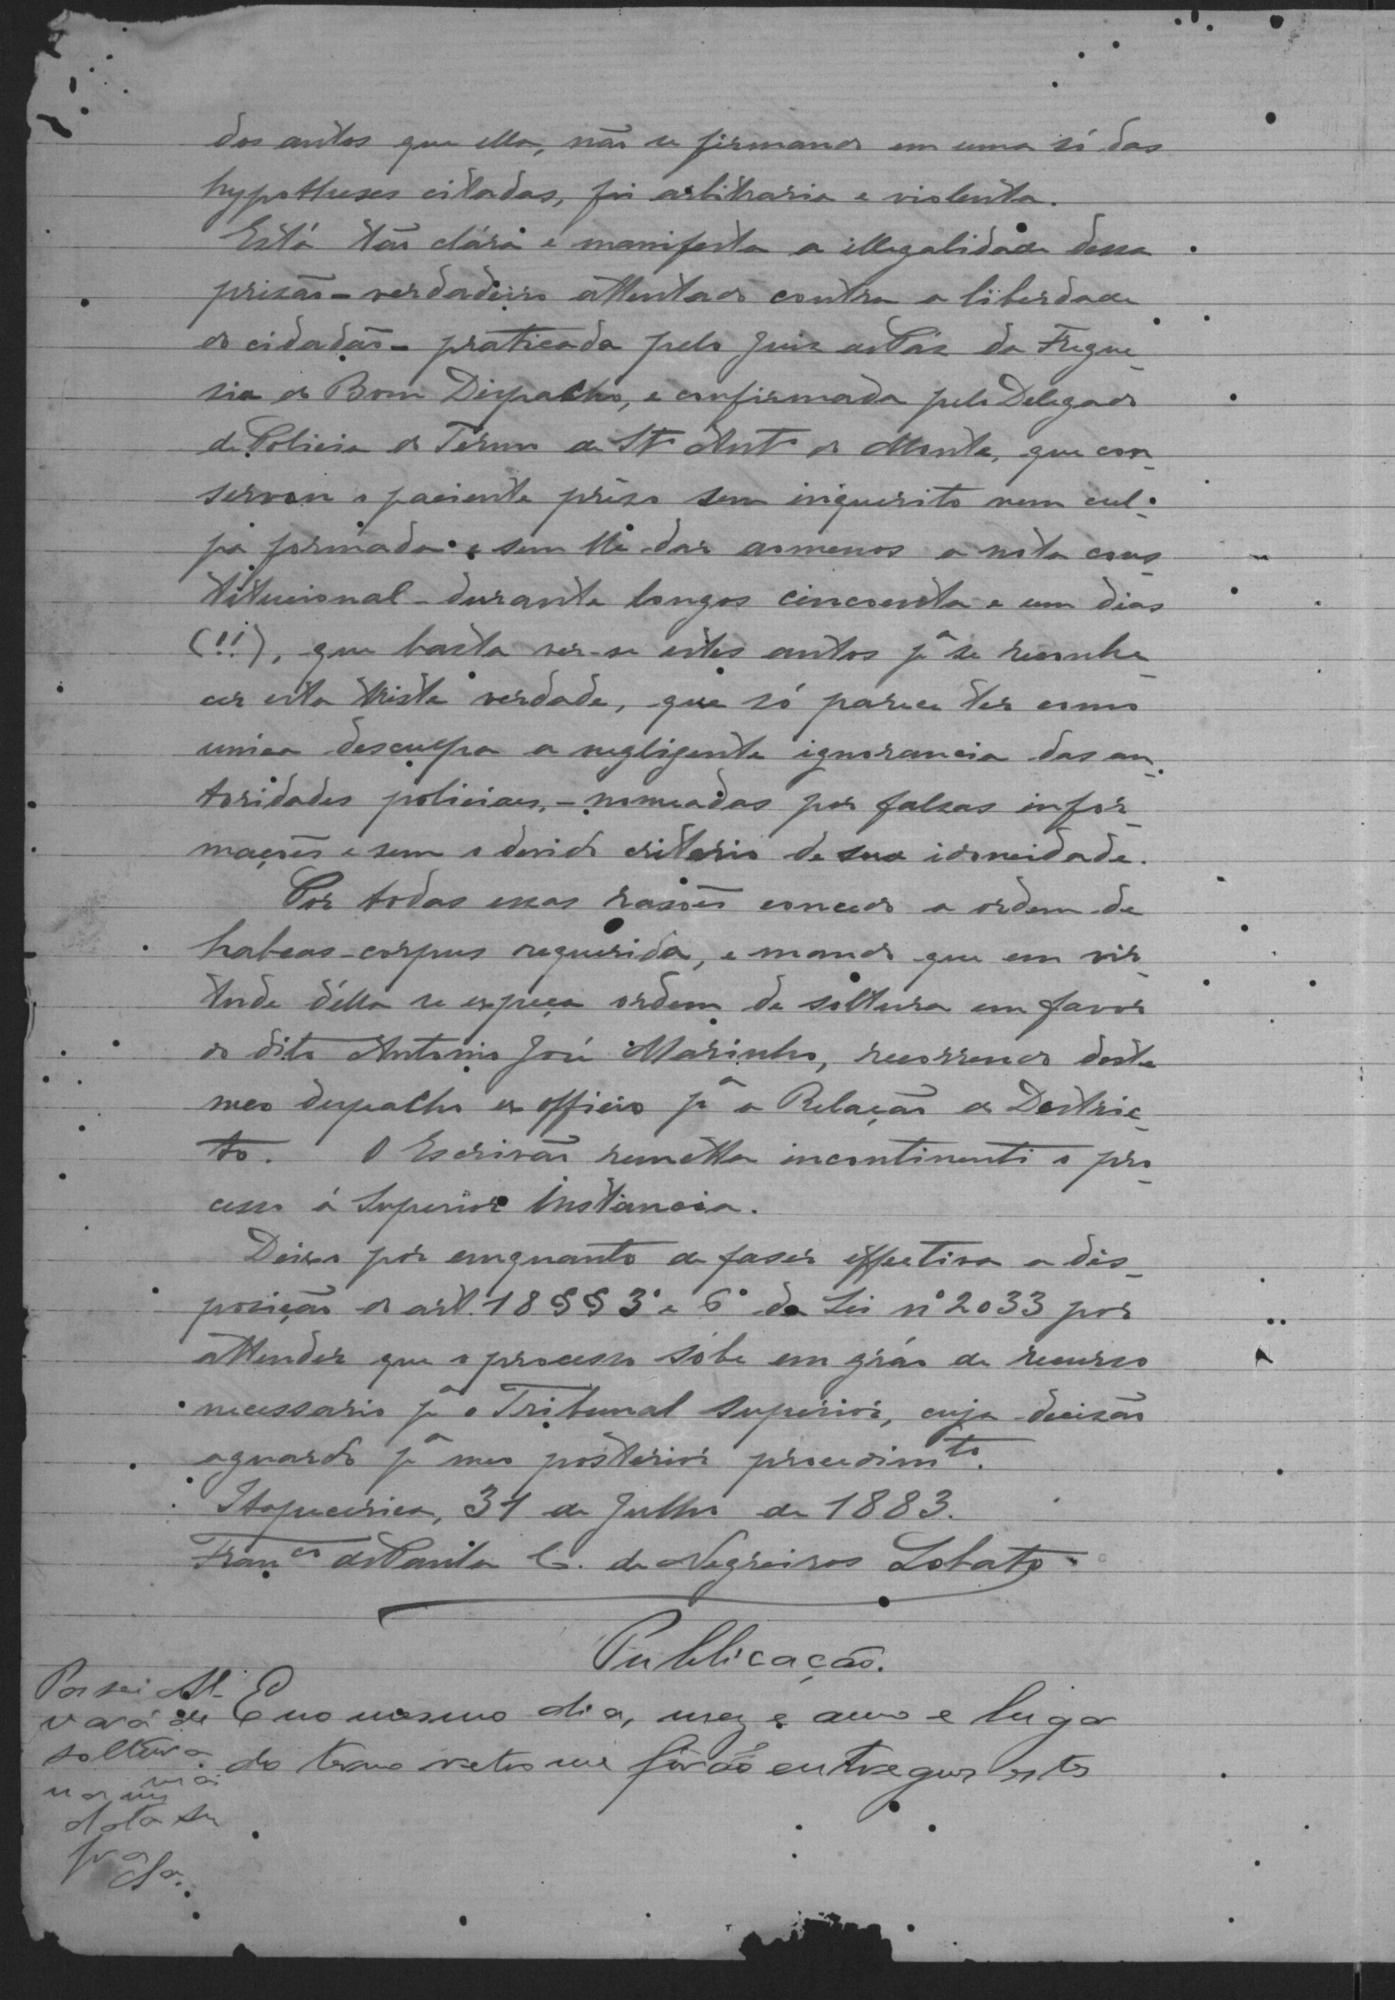 dos autos que ella, não se firmando em uma só das
hypotheses citadas, foi arbitraria e violenta.
Está tão clára e manifesta a illegalidade dessa
prizão - verdadeiro attentado contra a liberdade
do cidadão - praticada pelo Juiz de Páz da Fregue
sia do Bom Dispacho, e confirmada pelo Delegado
de Policia do Termo de Stº Antº do Monte, que con
servou o paciente prêzo sem inquerito nem cul-
pa formada e sem lhe dar aomenos a nota cons
titucional - durante longos cincoenta e um dias
(!!), que basta ver-se estes autos pª se reconhe
cer esta triste verdade, que só parece ter como
unica desculpa a negligente ignorancia das au
toridades policiaes, - nomeadas por falsas infor
mações e sem o devido criterio de sua idoneidade.
Por todas essas rasões concedo a ordem de
habeas-corpus requerida, e mando que em vir
tude délla se expeça ordem de soltura em favor
do dito Antonio José Marinho, recorrendo deste
meo despacho ex officio pª a Relação do Destric
to. O Escrivão remetta incontinenti o pro
cesso á Superior Instancia.
Deixo pôr emquanto de faser effectiva a dis
posição do art. 18 §§ 3º e 6º da Lei nº 2033 por
attender que o processo sóbe em gráo de recurso
necessario pª o Tribunal Superior, cuja decisão
aguardo pª meo posterior procedimtº.
Itapecerica, 31 de Julho de 1883.
Francº de Paula C. de Negreiros Lobato
Publicação.
E no mesmo dia, mez e anno e lugar
do termo retro me forão entregues estes
Passei Al-
vará de
soltura
data su
pra